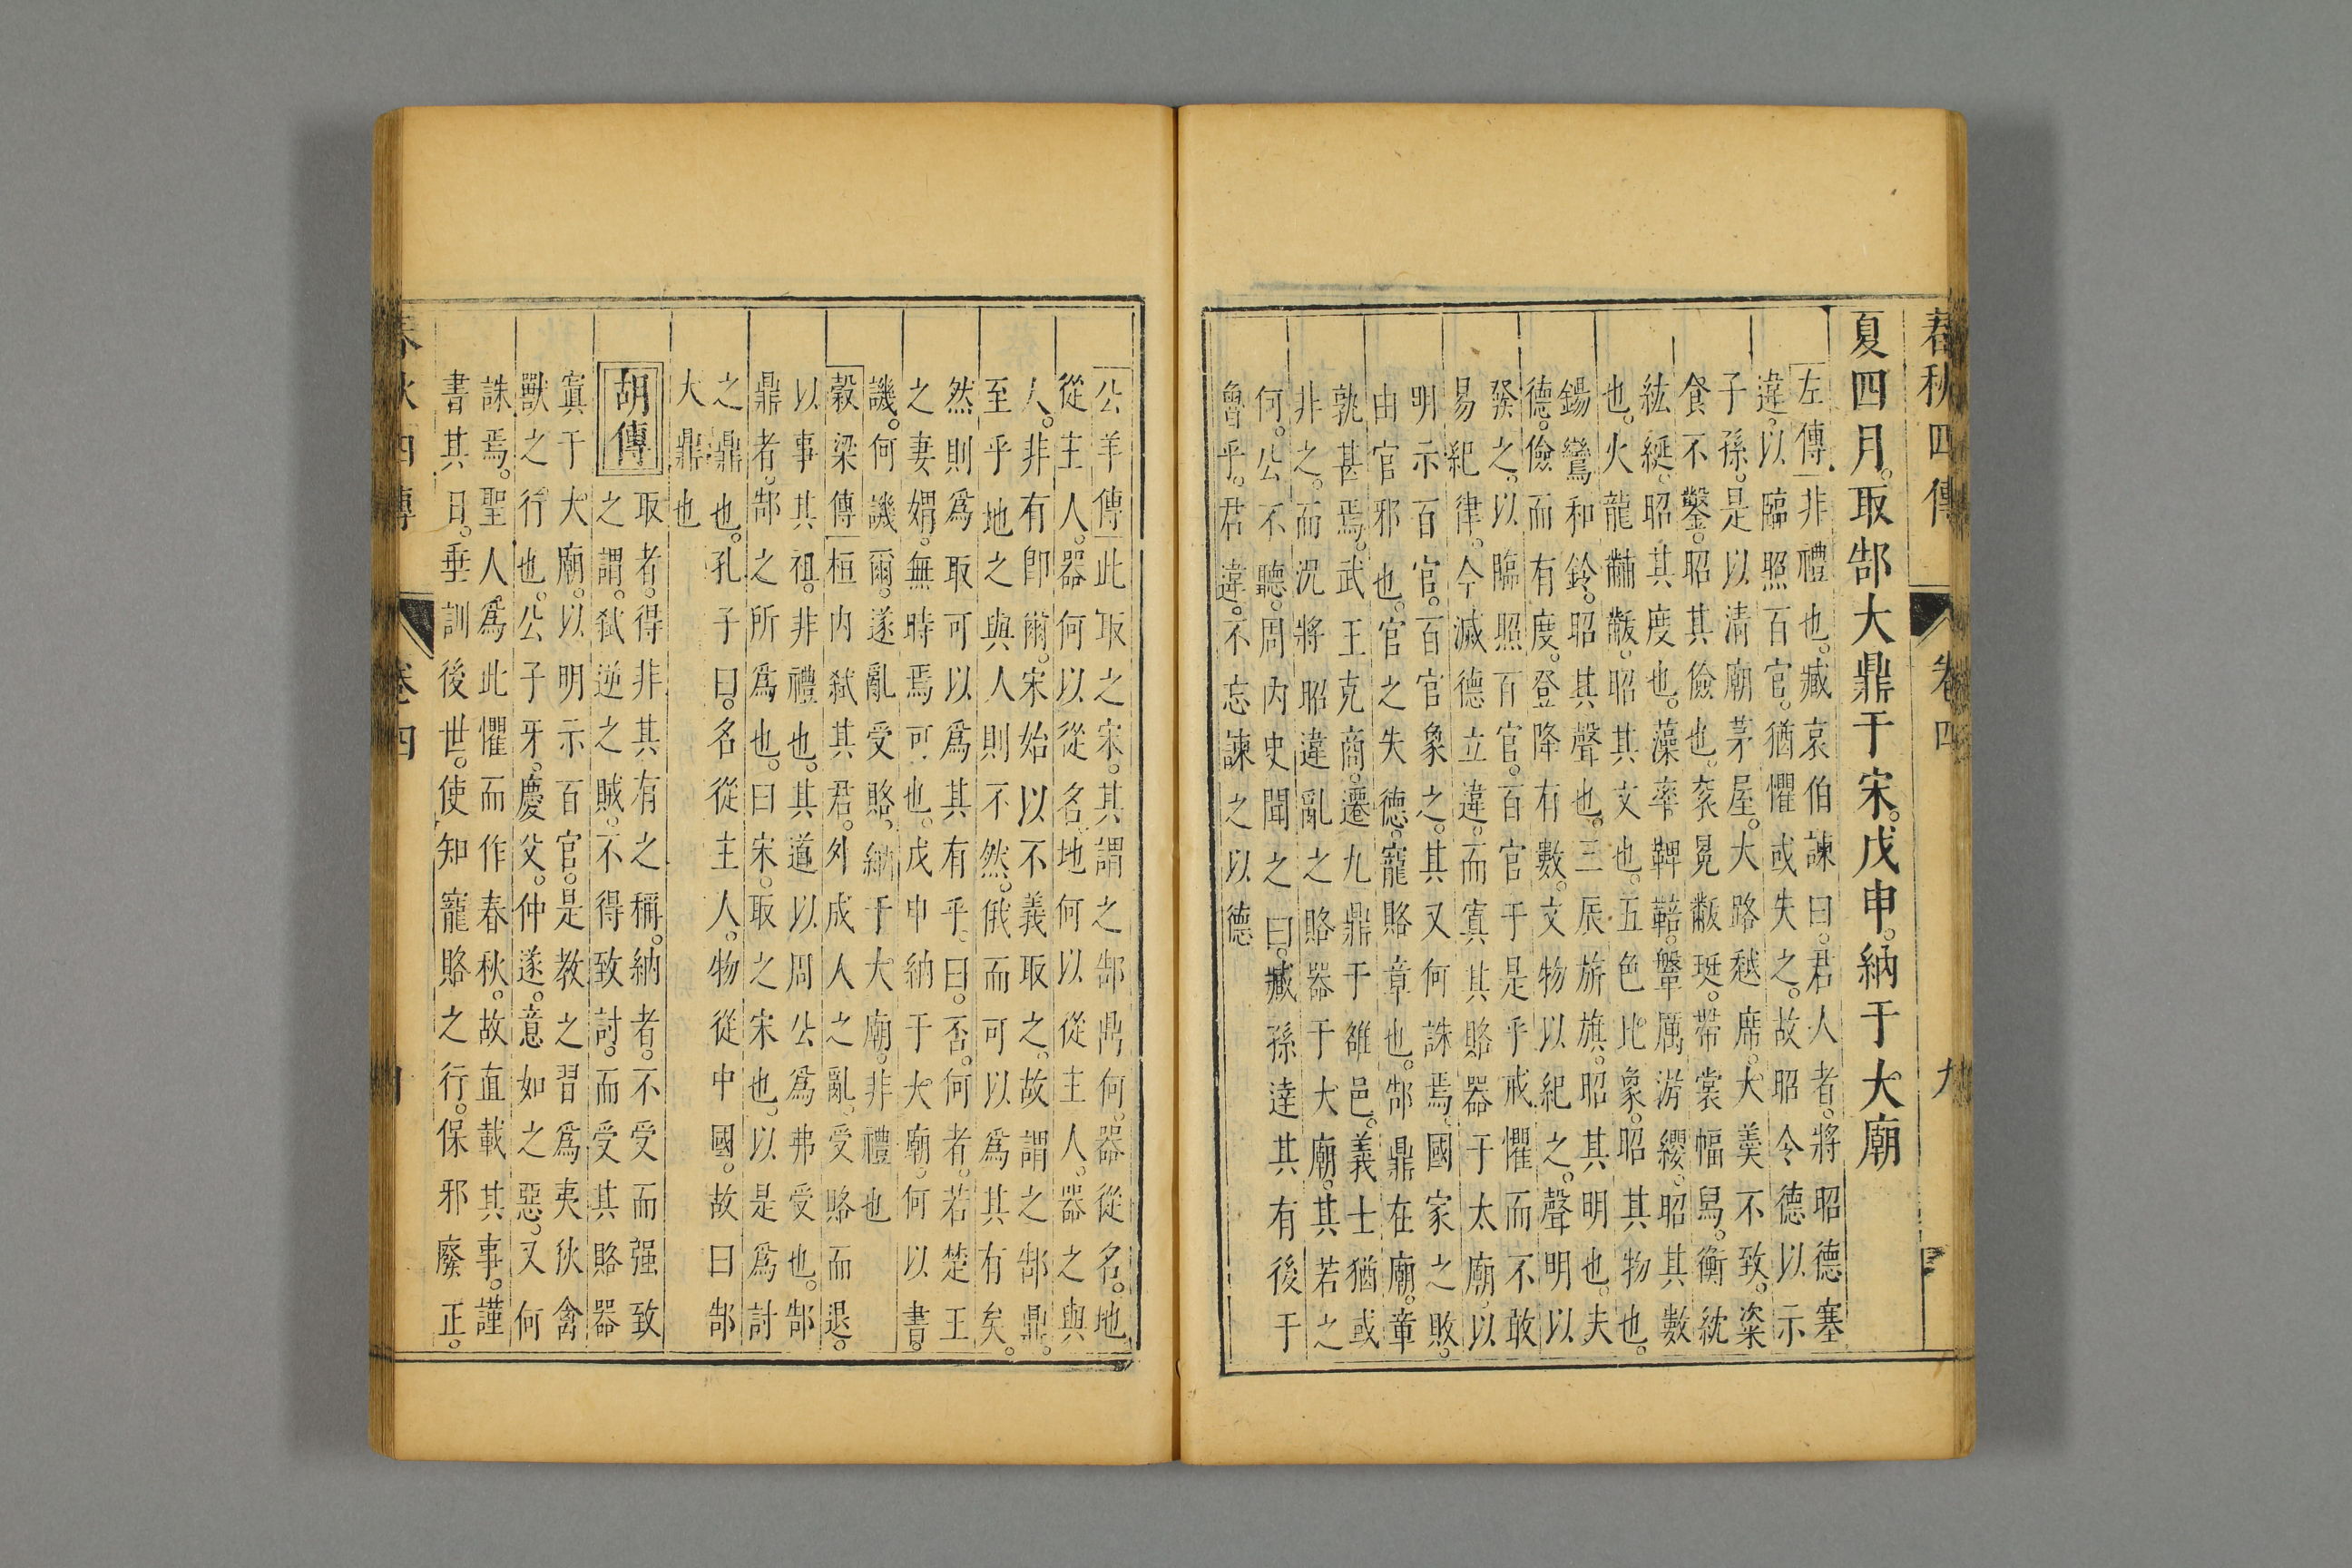 春秋四傳 卷四 九
夏四月。取郜大鼎于宋。戊申。納于大廟
左傳 非禮也。臧哀伯諫曰。君人者。將昭德塞
違。以臨照百官。猶懼或失之。故昭令德以示
子孫。是以清廟茅屋。大路越席。大羹不致。粢
食不鑿。昭其儉也。袞冕黻珽。帶裳幅舄。衡紞
紘綖。昭其度也。藻率鞞鞛。鞶厲游纓。昭其數
也。火龍黼黻。昭其文也。五色比象。昭其物也。
鍚鸞和鈴。昭其聲也。三辰旂旗。昭其明也。夫
德。儉而有度。登降有數。文物以紀之。聲明以
發之。以臨照百官。百官于是乎戒懼而不敢
易紀律。今滅德立違。而寘其賂器于太廟。以
明示百官。百官象之。其又何誅焉。國家之敗。
由官邪也。官之失德。寵賂章也。郜鼎在廟。章
孰甚焉。武王克商。遷九鼎于雒邑。義士猶或
非之。而況將昭違亂之賂器于大廟。其若之
何。公不聽。周內史聞之曰。臧孫達其有後于
魯乎。君違。不忘諫之以德
公羊傳 此取之宋。其謂之郜鼎何。器從名。地
從主人。器何以從名。地何以從主人。器之與
人。非有即爾。宋始以不義取之。故謂之郜鼎。
至乎地之與人則不然。俄而可以爲其有矣。
然則爲取可以爲其有乎。曰。否。何者。若楚王
之妻媦。無時焉可也。戊申納于大廟。何以書。
譏。何譏爾。遂亂受賂。納于大廟。非禮也
穀梁傳 桓內弒其君。外成人之亂。受賂而退。
以事其祖。非禮也。其道以周公爲弗受也。郜
鼎者。郜之所爲也。曰宋。取之宋也。以是爲討
之鼎也。孔子曰。名從主人。物從中國。故曰郜
大鼎也
胡傳 取者。得非其有之稱。納者。不受而强致
之謂。弒逆之賊。不得致討。而受其賂器
寘于大廟。以明示百官。是教之習爲夷狄禽
獸之行也。公子牙。慶父。仲遂。意如之惡。又何
誅焉。聖人爲此懼而作春秋。故直載其事。謹
書其日。垂訓後世。使知寵賂之行。保邪廢正。
春秋四傳 卷四